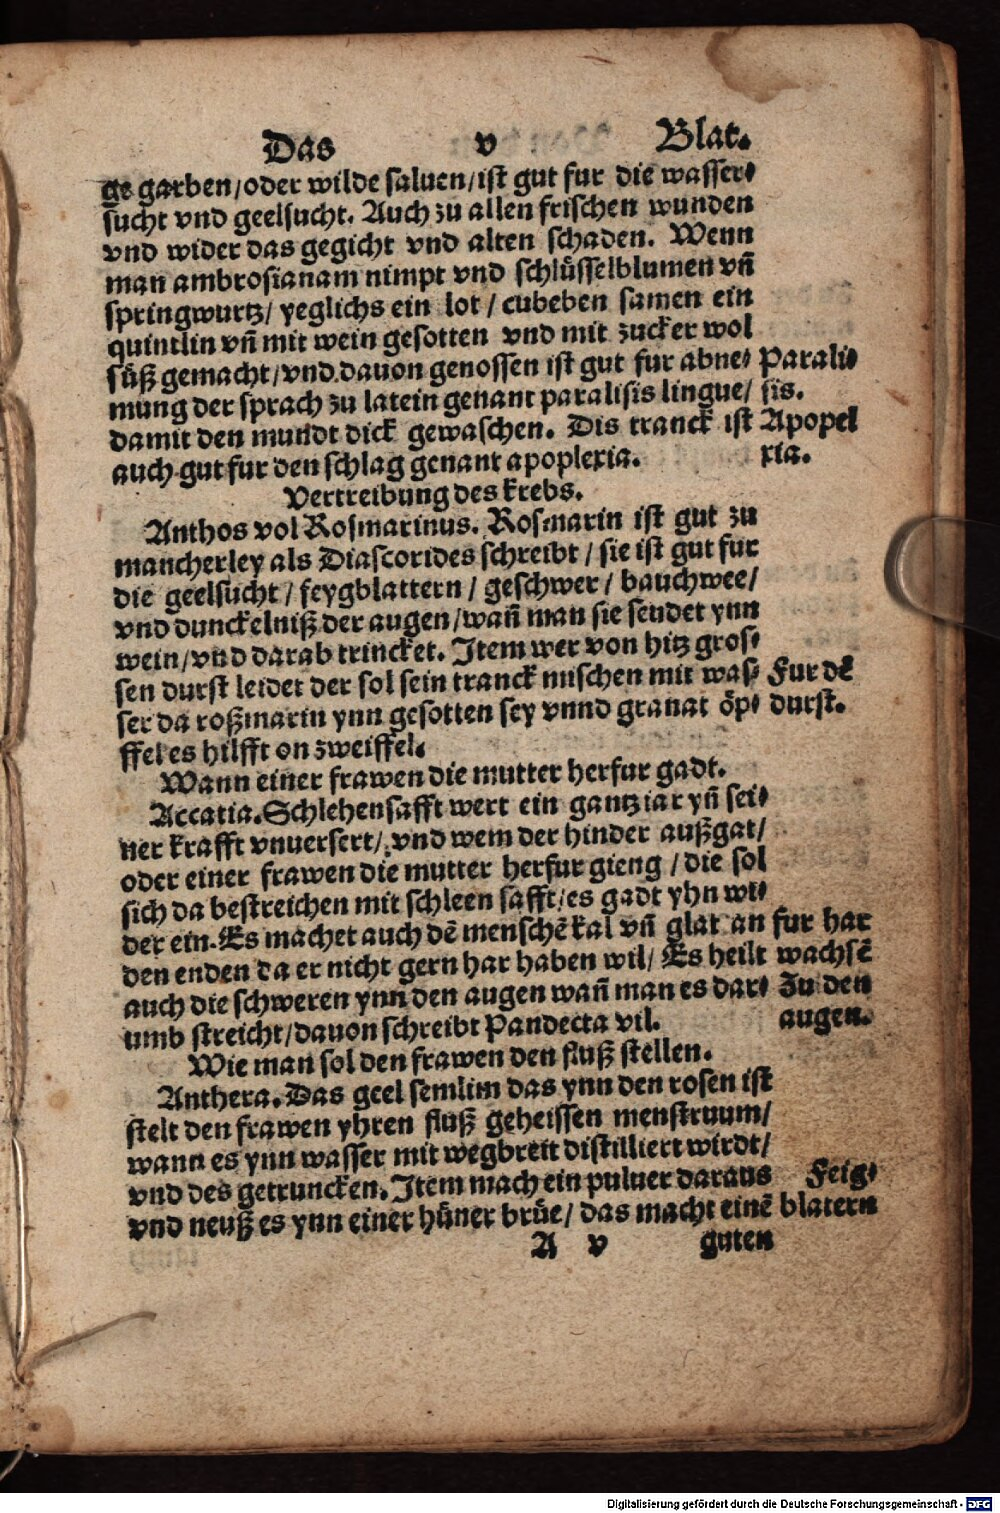 Das v Blat.
ge garben/oder wilde saluen/ist gut fur die wasser⸗
sucht vnd geelsucht. Auch zu allen frischen wunden
vnd wider das gegicht vnd alten schaden. Wenn
man ambrosianam nimpt vnd schlüsselblumen vñ
springwurtz/ yeglichs ein lot / cubeben samen ein
quintlin vñ mit wein gesotten vnd mit zucker wol
süß gemacht/vnd dauon genossen ist gut fur abne⸗ Parali⸗
mung der sprach zu latein genant paralisis lingue/ sis.
damit den mundt dick gewaschen. Dis tranck ist Apopel
auch gut fur den schlag genant apoplexia. xia.
Vertreibung des krebs.
Anthos vol Rosmarinus. Rosmarin ist gut zu
mancherley als Diascorides schreibt / sie ist gut fur
die geelsucht / feygblattern / geschwer / bauchwee/
vnd dunckelniß der augen/wañ man sie seudet ynn
wein/vnd darab trincket. Item wer von hitz gros⸗
sen durst leidet der sol sein tranck mischen mit was⸗ Fur dē
ser da roßmarin ynn gesotten sey vnnd granat öp⸗ durst.
ffel es hilfft on zweiffel.
Wann einer frawen die mutter herfur gadt.
Accatia. Schlehensafft wert ein gantz iar yñ sei⸗
ner krafft vnuersert/ vnd wem der hinder außgat/
oder einer frawen die mutter herfur gieng / die sol
sich da bestreichen mit schleen safft/es gadt yhn wi⸗
der ein. Es machet auch dē menschē kal vñ glat an fur har
den enden da er nicht gern har haben wil/ Es heilt wachsē
auch die schweren ynn den augen wañ man es dar⸗ Zu den
umb streicht/dauon schreibt Pandecta vil. augen.
Wie man sol den frawen den fluß stellen.
Anthera. Das geel semlim das ynn den rosen ist
stelt den frawen yhren fluß geheissen menstruum/
wann es ynn wasser mit wegbreit distilliert wirdt/
vnd des getruncken. Item mach ein puluer daraus Feig⸗
vnd neuß es ynn einer hüner brüe/ das macht einē blatern
A v guten
Digitalisierung gefördert durch die Deutsche Forschungsgemeinschaft - DFG